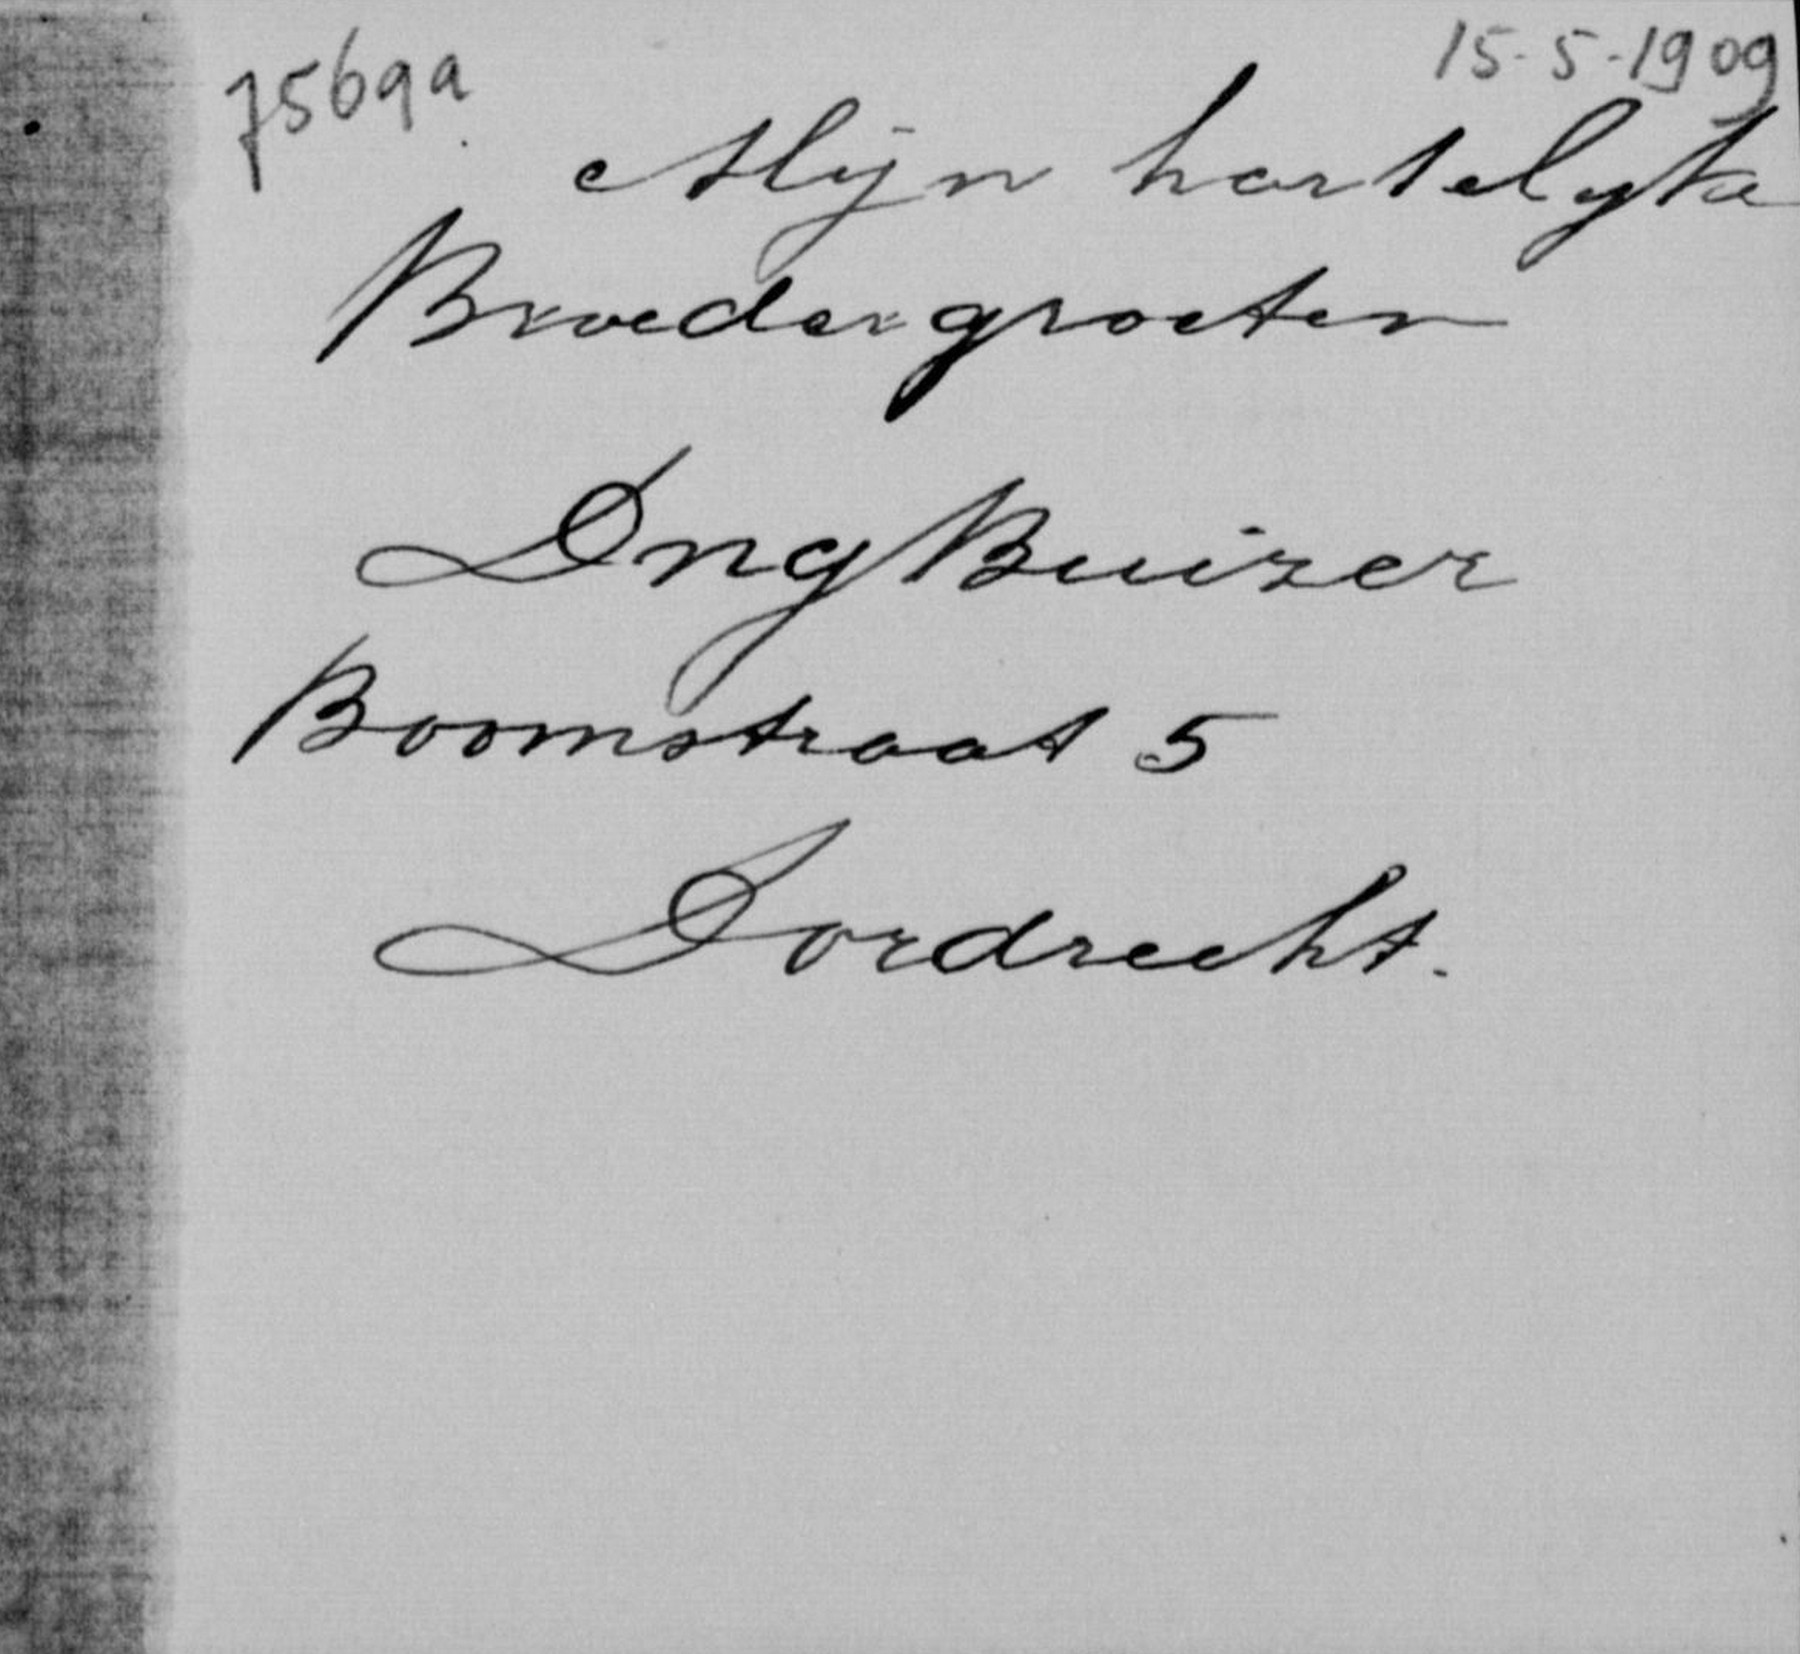 7569a
15-5-1909
Mijn hartelyke
Broedergroeten
Buizer
Boomstraat 5
Dordrecht.